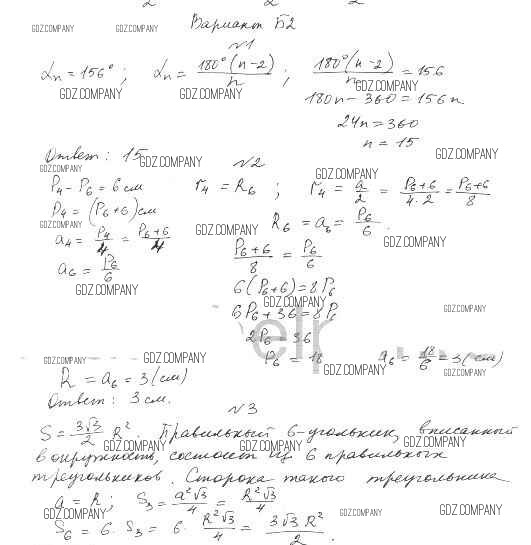 Вариант Б2
№1
αn = 156°; αn = 180°(n-2)/n; 180°(n-2)/n = 156
180n - 360 = 156n
24n = 360
n = 15
Ответ: 15
№2
P4 - P6 = 6 см r4 = R6; r4 = a/2 = P6+6/4·2 = P6+6/8
P4 = (P6+6) см
R6 = a6 = P6/6.
a4 = P4/4 = P6+6/4
P6+6/8 = P6/6
a6 = P6/6
6(P6+6) = 8P6
6P6 + 36 = 8P6
2P6 = 36
P6 = 18 a6 = 18/6 = 3 (см)
R = a6 = 3 (см)
Ответ: 3 см.
№3
S = 3√3/2 R². Правильный 6-угольник, вписанный
в окружность, состоит из 6 правильных
треугольников. Сторона такого треугольника
a = R; S3 = a²√3/4 = R²√3/4
S6 = 6·S3 = 6·R²√3/4 = 3√3 R²/2.
GDZ.COMPANY